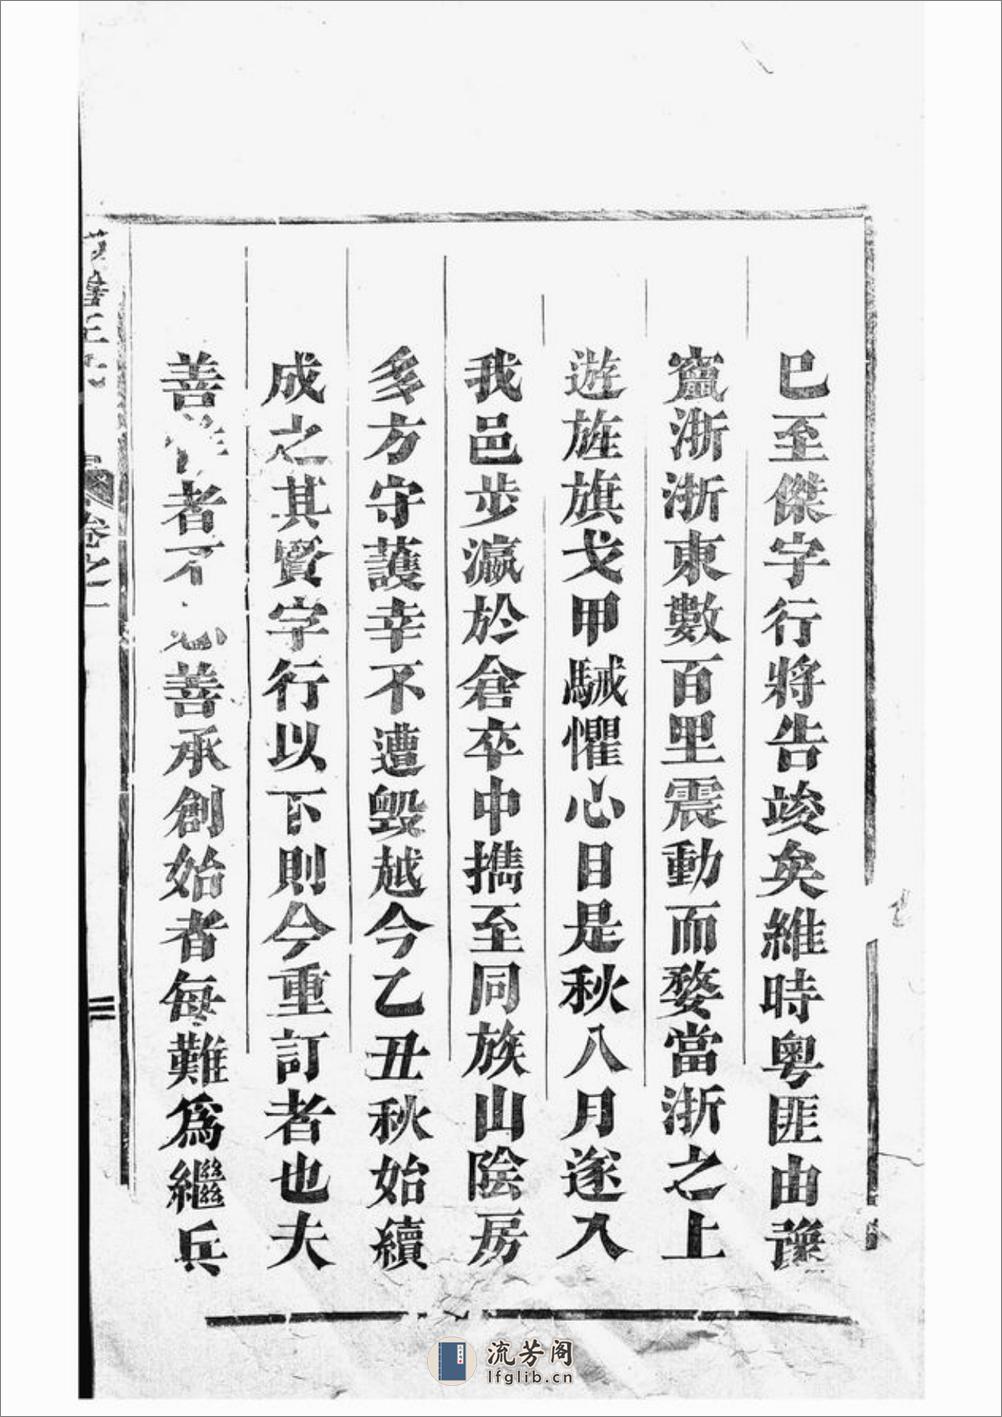 巳至傑字行將告竣矣維時粵匪由豫
竄浙浙東數百里震動而婺當浙之上
遊旌旗戈甲駴懼心目是秋八月遂入
我邑步瀛於倉卒中攜至同族山陰房
多方守護幸不遭毀越今乙丑秋始續
成之其賢字行以下則今重訂者也夫
善作者不必善承創始者每難為繼兵
卷之一
流芳阁
lfglib.cn